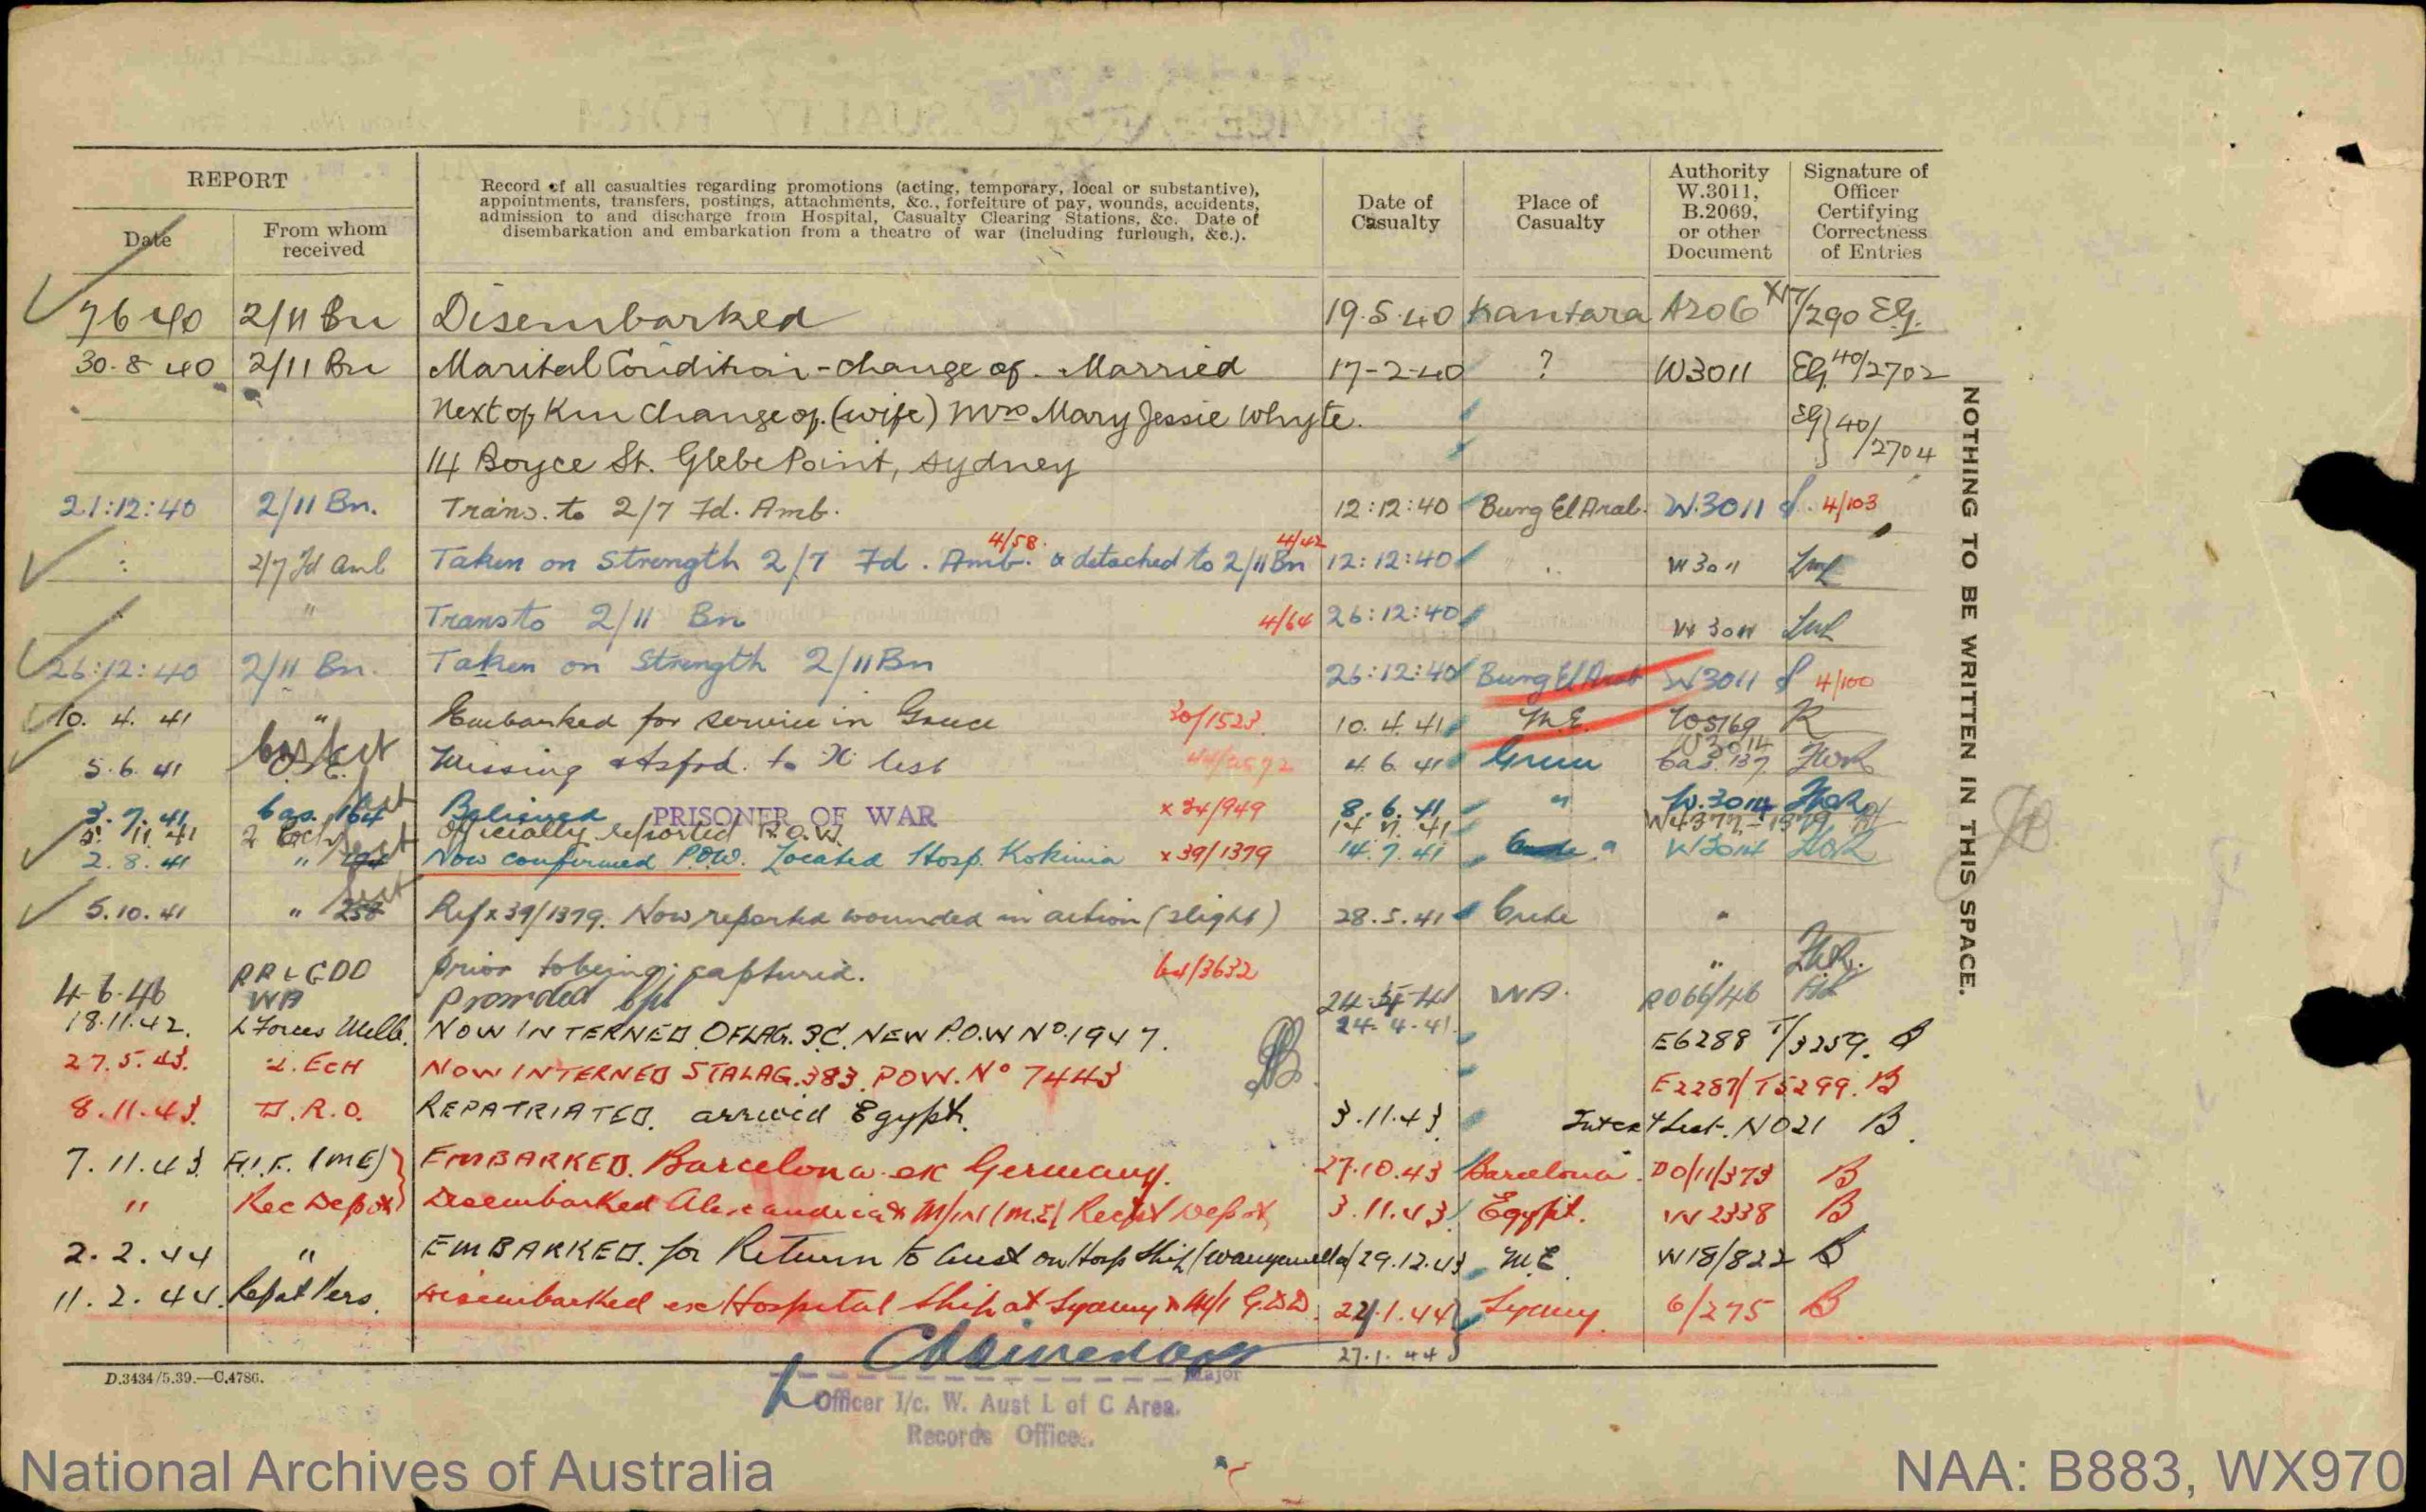 REPORT
Date
From whom received
Record of all casualties regarding promotions (acting, temporary, local or substantive),
appointments, transfers, postings, attachments, &c., forfeiture of pay, wounds, accidents,
admission to and discharge from Hospital, Casualty Clearing Stations, &c. Date of
disembarkation and embarkation from a theatre of war (including furlough, &c.).
Date of Casualty
Place of Casualty
Authority W.3011, B.2069, or other Document
Signature of Officer Certifying Correctness of Entries
7 6 40 2/11 Bn Disembarked 19.5.40 Kantara A206 X17/290 EG.
30-8-40 2/11 Bn Marital Condition - change of. Married 17-2-40 ? W3011 EG 40/2702
Next of Kin Change of. (wife) Mrs Mary Jessie Whyte. EG 40/2704
14 Boyce St. Glebe Point, Sydney
21:12:40 2/11 Bn. Trans. to 2/7 Fd. Amb. 12:12:40 Burg El Arab. W.3011 4/103
2/7 Fd Amb Taken on Strength 2/7 Fd. Amb. 4/58. & detached to 2/11 Bn 4/42 12:12:40 W3011
" Trans to 2/11 Bn 4/64 26:12:40 W3011
26:12:40 2/11 Bn. Taken on Strength 2/11 Bn 26:12:40 Burg El Arab W3011 4/100
10. 4. 41 " Embarked for service in Greece 30/1523 10.4.41 M.E. W5169 R
5.6.41 Missing & tsfrd. to X list 4.6.41 W3014 Cas. 137
3.7.41 Cas. 164 Believed PRISONER OF WAR x 34/949 8.6.41 " W.3014
5. 11. 41 2 Ech Officially reported P.O.W. 14 7. 41 W4377-1379
2.8.41 " Now confirmed P.O.W. Located Hosp. Kokinia x 39/1379 14.7.41 W3014
5.10.41 " 258 Ref x 39/1379. Now reported wounded in action (slight) 28.5.41 Crete "
prior to being captured. 64/3632 "
4-6-46 RRLGDD WA Promoted Cpl WA. R066/46
18.11.42. L Forces Melb. NOW INTERNED OFLAG. 3C. NEW P.O.W No. 1947. 24-4-41. E6288 T/3259. B
27.5.43. 2. ECH NOW INTERNED STALAG. 383. POW. No 7443 E2287/T5299. B
8.11.43. D.R.O. REPATRIATED. arrived Egypt. 3.11.43. List. NO21 B.
7.11.43 A.I.F. (ME) EMBARKED. Barcelona. ex Germany. 27.10.43 Barcelona. DO/11/373 B
" Rec Depot Disembarked Alexandria & M/IN (M.E) Recpt Depot 3.11.43 Egypt. W2338 B
2.2.44 " EMBARKED. for Return to Aust on Hosp Ship (Wanganella) 29.12.43 M.E. W18/822 B
11.2.44. Repat Pers. Disembarked ex Hospital Ship at Sydney & M/I GDD. 22.1.44 Sydney. 6/275 B
27.1.44
Major
Officer I/c. W. Aust L of C Area.
Records Office.
D.3434/5.39.—C.4786.
NOTHING TO BE WRITTEN IN THIS SPACE.
National Archives of Australia
NAA: B883, WX970